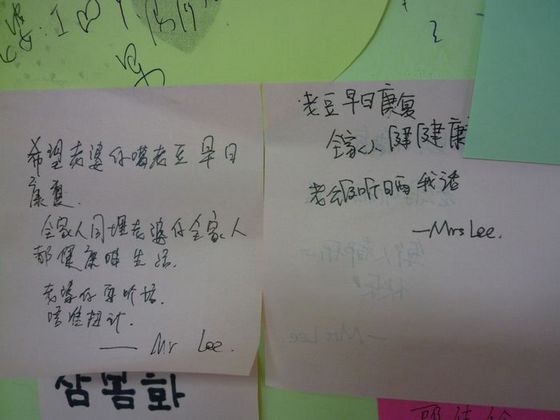 希望老婆仔嘅老豆早日
康复.
全家人同埋老婆仔全家人
都健康啲生活.
老婆仔要听话.
唔准扭计.
—— Mr Lee.
老豆早日康复
全家人健健康
老公仔听晒我话
—Mrs Lee.